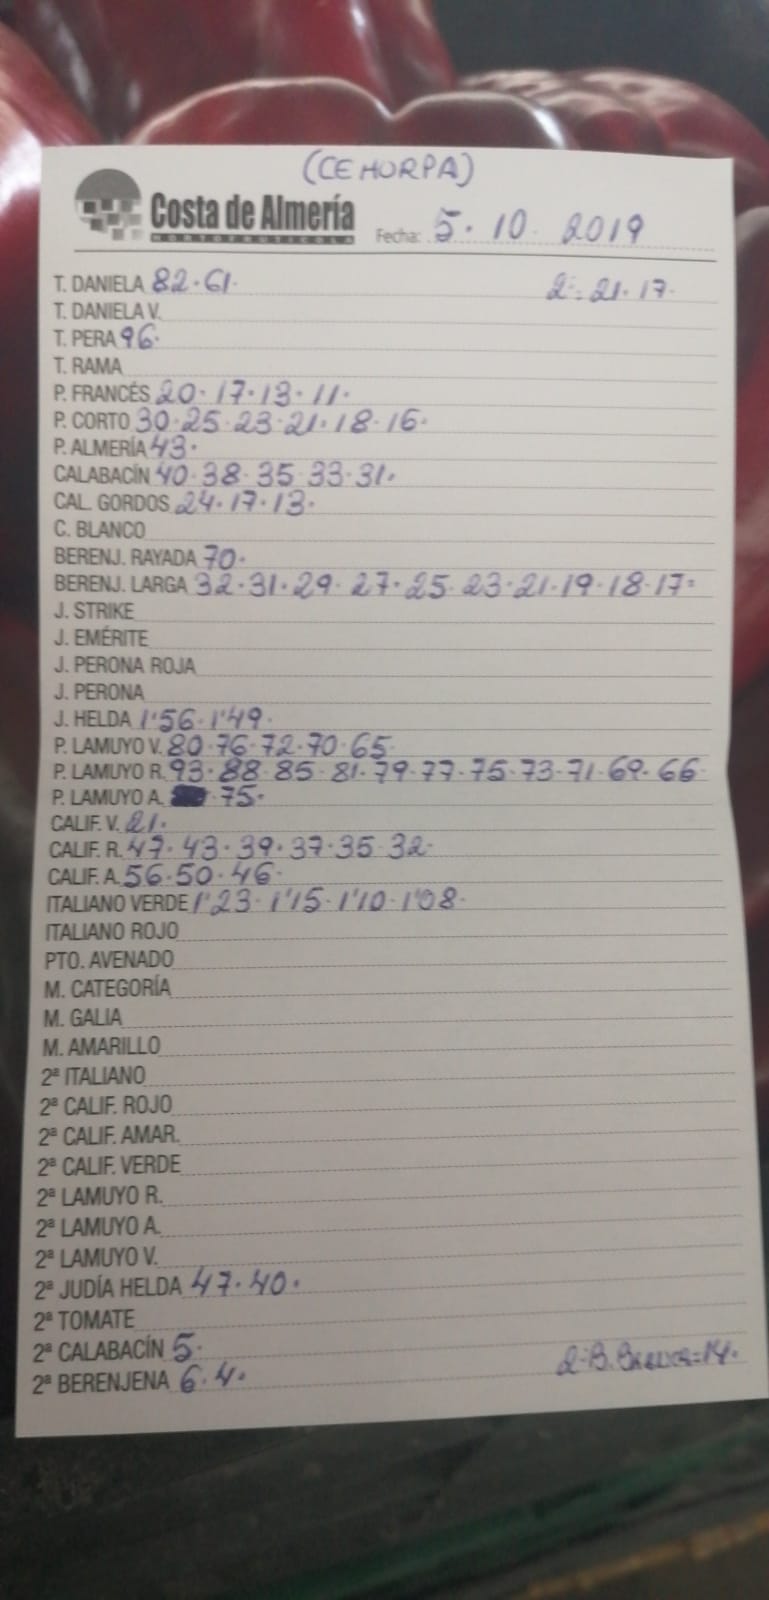 (CEHORPA)
Costa de Almería
HORTOFRUTICOLA
Fecha: 5. 10. 2019
T. DANIELA 82.61. 2ª. 21.17.
T. DANIELA V.
T. PERA 96.
T. RAMA
P. FRANCÉS 20.17.13.11.
P. CORTO 30.25.23.21.18.16.
P. ALMERÍA 43.
CALABACÍN 40.38.35.33.31.
CAL. GORDOS 24.17.13.
C. BLANCO
BERENJ. RAYADA 70.
BERENJ. LARGA 32.31.29.27.25.23.21.19.18.17=
J. STRIKE
J. EMÉRITE
J. PERONA ROJA
J. PERONA
J. HELDA 1'56.1'49.
P. LAMUYO V. 80.76.72.70.65.
P. LAMUYO R. 93.88.85.81.79.77.75.73.71.69.66.
P. LAMUYO A. .75.
CALIF. V. 21.
CALIF. R. 47.43.39.37.35.32.
CALIF. A. 56.50.46.
ITALIANO VERDE 1'23.1'15.1'10.1'08.
ITALIANO ROJO
PTO. AVENADO
M. CATEGORÍA
M. GALIA
M. AMARILLO
2ª ITALIANO
2ª CALIF. ROJO
2ª CALIF. AMAR.
2ª CALIF. VERDE
2ª LAMUYO R.
2ª LAMUYO A.
2ª LAMUYO V.
2ª JUDÍA HELDA 47.40.
2ª TOMATE
2ª CALABACÍN 5.
2ª BERENJENA 6.4. 2.B. =14.